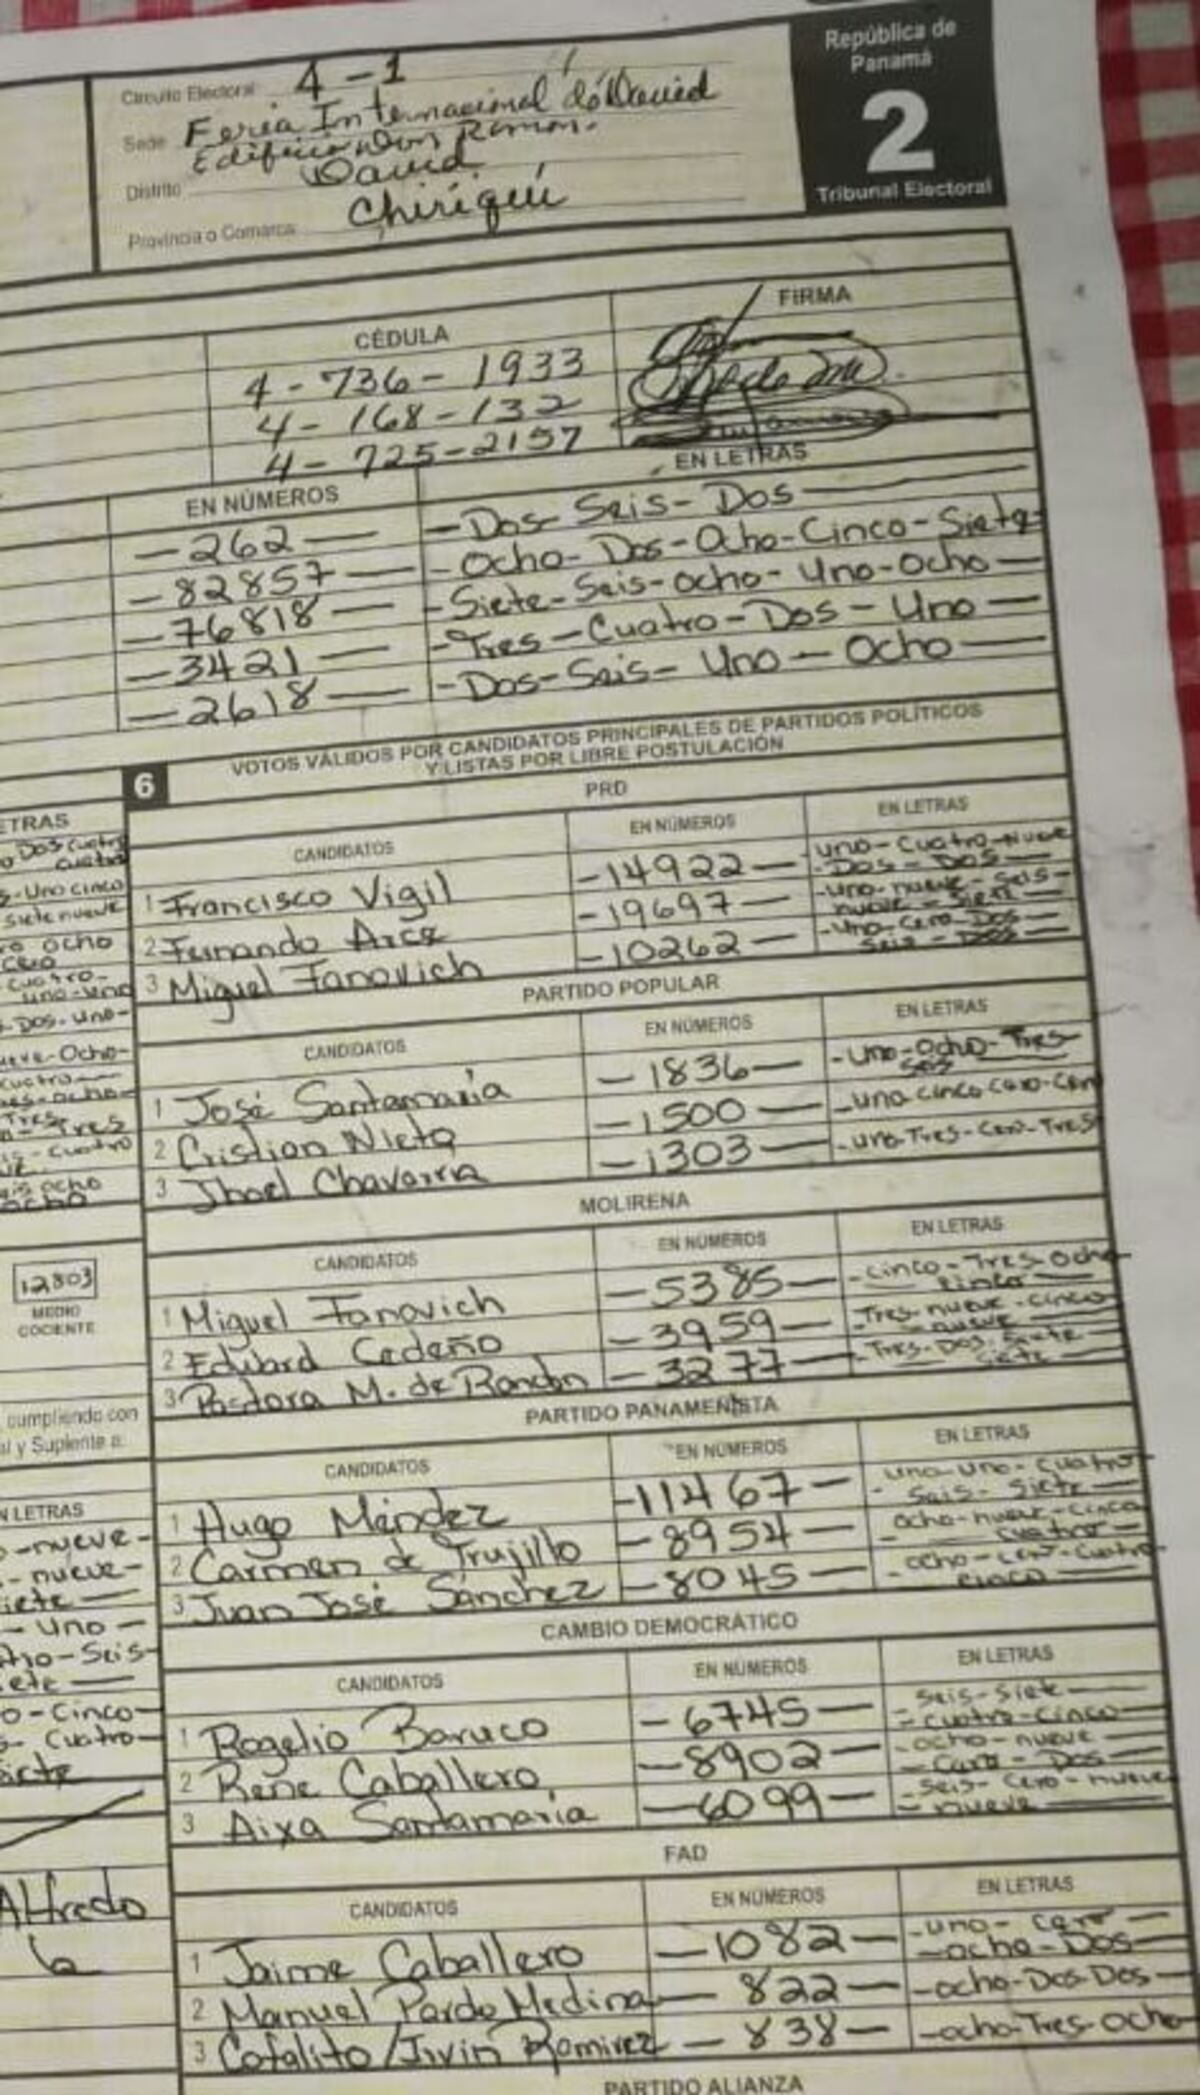 República de
Panamá
2
Tribunal Electoral
Circuito Electoral 4-1
Sede Feria Internacional de David
Edificio Don Ramon.
Distrito David
Provincia o Comarca Chiriquí
CÉDULA FIRMA
4-736-1933
4-168-132
4-725-2157
EN NÚMEROS EN LETRAS
-262- -Dos-Seis-Dos-
-82857- -Ocho-Dos-Ocho-Cinco-Siete-
-76818- -Siete-Seis-ocho-Uno-Ocho-
-3421- -Tres-Cuatro-Dos-Uno-
-2618- -Dos-Seis-Uno-Ocho-
6 VOTOS VÁLIDOS POR CANDIDATOS PRINCIPALES DE PARTIDOS POLÍTICOS
Y LISTAS POR LIBRE POSTULACIÓN
PRD
CANDIDATOS EN NÚMEROS EN LETRAS
1 Francisco Vigil -14922- uno-Cuatro-Nueve
-Dos-Dos-
2 Fernando Arce -19697- -uno-nueve-Seis-
nueve-Siete-
3 Miguel Fanovich -10262- -Uno-Cero-Dos
Seis-Dos-
PARTIDO POPULAR
CANDIDATOS EN NÚMEROS EN LETRAS
1 José Santamaría -1836- -Uno-Ocho-Tres-
Seis
2 Cristian Nieto -1500- -una cinco cero-cero
3 Jhoel Chavarria -1303- -uno-Tres-Cero-Tres
MOLIRENA
CANDIDATOS EN NÚMEROS EN LETRAS
1 Miguel Fanovich -5385- -cinco-Tres-Ocho
cinco-
2 Eduard Cedeño -3959- -Tres-nueve-cinco
-nueve-
3 Pastora M. de Rondón -3277- -Tres-Dos-Siete-
Siete-
PARTIDO PANAMEÑISTA
CANDIDATOS EN NÚMEROS EN LETRAS
1 Hugo Méndez -11467- -uno-uno-cuatro
Seis-Siete-
2 Carmen de Trujillo -8954- ocho-nueve-cinco
-cuatro-
3 Juan José Sánchez -8045- -ocho-cero-cuatro
cinco-
CAMBIO DEMOCRÁTICO
CANDIDATOS EN NÚMEROS EN LETRAS
1 Rogelio Baruco -6745- Seis-Siete-
-cuatro-cinco-
2 Rene Caballero -8902- -ocho-nueve-
-Cero-Dos-
3 Aixa Santamaría -6099- -Seis-Cero-nueve
-nueve-
FAD
CANDIDATOS EN NÚMEROS EN LETRAS
1 Jaime Caballero -1082- -uno-cero-
-ocho-Dos-
2 Manuel Pardo Medina -822- -ocho-Dos-Dos-
3 Cofalito/Irvin Ramirez -838- -ocho-Tres-Ocho-
PARTIDO ALIANZA
ETRAS
Dos Cuatro
cuatro
-Uno cinco
siete nueve
ocho
cero
cuatro-
uno-uno
-Dos-uno-
ueve-Ocho-
cuatro-
Tres
-Tres
-cuatro
ocho
ocho
12803
MEDIO
COCIENTE
cumpliendo con
al y Suplente a:
N LETRAS
-nueve-
-nueve-
iete-
-uno-
tro-Seis-
ete-
o-Cinco-
-Cuatro-
Alfredo